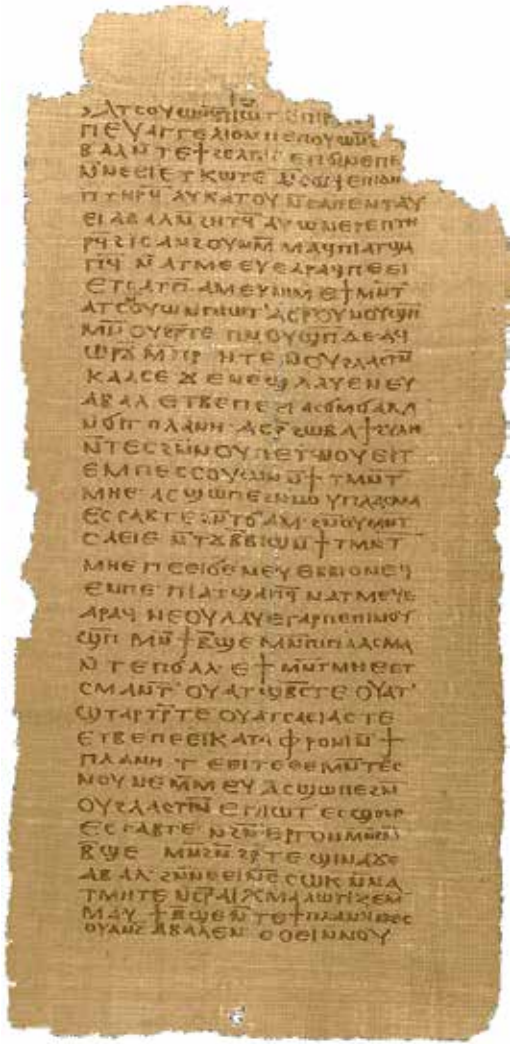 ⲡⲉⲩⲁⲅⲅⲉⲗⲓⲟⲛ ⲡⲉ ⲡⲟⲩⲱⲛϩ
ⲃⲁⲗ ⲛ̄ⲧⲉ ϯϩⲉⲗⲡⲓⲥ ⲉⲡϭⲛⲉ ⲡⲉ
ⲛ̄ⲛⲉⲉⲓ ⲉⲧⲕⲱⲧⲉ ⲛ̄ⲥⲱϥ ⲉⲡⲓⲇⲏ
ⲡⲧⲏⲣϥ ⲁⲩⲕⲁⲧⲟⲩ ⲛ̄ⲥⲁ ⲡⲉⲛⲧⲁⲩ
ⲉⲓ ⲁⲃⲁⲗ ⲛ̄ϩⲏⲧϥ ⲁⲩⲱ ⲛⲉⲣⲉ ⲡⲧⲏ
ⲣϥ ϩⲓⲥⲁⲛϩⲟⲩⲛ ⲙ̄ⲙⲁϥ ⲡⲓⲁⲧϣⲁ
ⲡϥ ⲛ̄ⲁⲧⲙⲉⲉⲩⲉ ⲁⲣⲁϥ ⲡⲉⲉⲓ
ⲉⲧⲥⲁⲧⲡ̄ ⲁⲙⲉⲩ ⲛⲓⲙ ⲉϯⲙⲛ̄ⲧ
ⲁⲧⲥⲟⲩⲱⲛ ⲡⲓⲱⲧ ⲁⲥⲣ̄ ⲟⲩⲛⲟⲩϣⲡ̄
ⲙⲛ̄ ⲟⲩϩⲣ̄ⲧⲉ ⲡⲛⲟⲩϣⲡ̄ ⲇⲉ ⲁϥ
ⲱⲣϫ̄ ⲙ̄ⲡⲣⲏⲧⲉ ⲛ̄ⲟⲩϩⲗⲁⲥⲧⲛ̄
ⲕⲁⲁⲥⲉ ϫⲉ ⲛⲉϣ ⲗⲁⲩⲉ ⲛⲉⲩ
ⲁⲃⲁⲗ ⲉⲧⲃⲉ ⲡⲉⲉⲓ ⲁⲥϭⲙ̄ϭⲁⲙ
ⲛ̄ϭⲓ ϯⲡⲗⲁⲛⲏ ⲁⲥⲣ̄ ϩⲱⲃ ⲁϯϩⲩⲗⲏ
ⲛ̄ⲧⲉⲥ ϩⲛ̄ⲛ ⲟⲩⲡⲉⲧϣⲟⲩⲉⲓⲧ
ⲉⲙⲡⲉⲥⲥⲟⲩⲱⲛ ⲛ̄ϯⲙⲛ̄ⲧ
ⲙⲏⲉ ⲁⲥϣⲱⲡⲉ ϩⲛ̄ⲛ ⲟⲩⲡⲗⲁⲥⲙⲁ
ⲉⲥⲥⲁⲃⲧⲉ ϩⲛ̄ ⲧϭⲁⲙ ϩⲛ̄ ⲟⲩⲙⲛ̄ⲧ
ⲥⲁⲉⲓⲉ ⲛ̄ⲧϫⲃ̄ⲃⲓⲱ ⲛ̄ϯⲙⲛ̄ⲧ
ⲙⲏⲉ ⲡⲉⲉⲓ ϭⲉ ⲛⲉⲩⲑⲃ̄ⲃⲓⲟ ⲛⲉϥ
ⲉⲛ ⲡⲉ ⲡⲓⲁⲧϣⲁⲡϥ ⲛ̄ⲁⲧⲙⲉⲩⲉ
ⲁⲣⲁϥ ⲛⲉⲟⲩⲗⲁⲩⲉ ⲅⲁⲣ ⲡⲉ ⲡⲓⲛⲟⲩ
ϣⲡ̄ ⲙⲛ̄ ϯⲃ̄ϣⲉ ⲙⲛ̄ ⲡⲓⲡⲗⲁⲥⲙⲁ
ⲛ̄ⲧⲉ ⲡϭⲁⲗ ⲉϯⲙⲛ̄ⲧⲙⲏⲉ ⲉⲧ
ⲥⲙⲁⲛⲧ ⲟⲩⲁⲧϣⲃ̄ⲧⲥ ⲧⲉ ⲟⲩⲁⲧ
ϣⲧⲁⲣⲧⲣ̄ ⲧⲉ ⲟⲩⲁⲧⲥⲁⲉⲓⲁⲥ ⲧⲉ
ⲉⲧⲃⲉ ⲡⲉⲉⲓ ⲕⲁⲧⲁⲫⲣⲟⲛⲓ ⲛ̄ϯ
ⲡⲗⲁⲛⲏ ϯⲉⲉⲓ ⲧⲉ ⲑⲉ ⲙⲛ̄ⲧⲉⲥ
ⲛⲟⲩⲛⲉ ⲙ̄ⲙⲉⲩ ⲁⲥϣⲱⲡⲉ ϩⲛ̄
ⲟⲩϩⲗⲁⲥⲧⲛ̄ ⲉⲡⲓⲱⲧ ⲉⲥϣⲟⲟⲡ
ⲉⲥⲥⲁⲃⲧⲉ ⲛ̄ϩⲛ̄ⲉⲣⲅⲟⲛ ⲙⲛ̄ ϩⲛ̄
ⲃ̄ϣⲉ ⲙⲛ̄ ϩⲛ̄ϩⲣ̄ⲧⲉ ϣⲓⲛⲁ ϫⲉ
ⲁⲃⲁⲗ ϩⲛ̄ ⲛⲉⲉⲓ ⲛ̄ⲥⲥⲱⲕ ⲛ̄ⲛⲁ
ⲧⲙⲏⲧⲉ ⲛ̄ⲥⲣ̄ ⲁⲓⲭⲙⲁⲗⲱⲧⲓⲍⲉ ⲙ̄
ⲙⲁⲩ ϯⲃ̄ϣⲉ ⲛ̄ⲧⲉ ϯⲡⲗⲁⲛⲏ ⲛⲉⲥ
ⲟⲩⲁⲛϩ ⲁⲃⲁⲗ ⲉⲛ ⲥⲟⲉⲓ ⲛ̄ⲛⲟⲩ